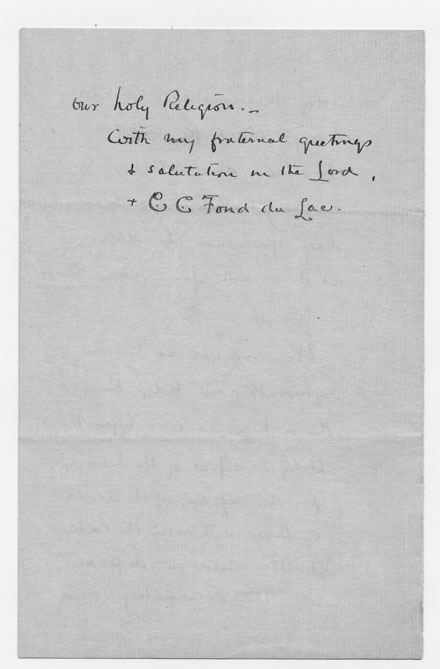 our holy Religion. _
With my fraternal greetings
& salutation in the Lord,
+ C C Fond du Lac.